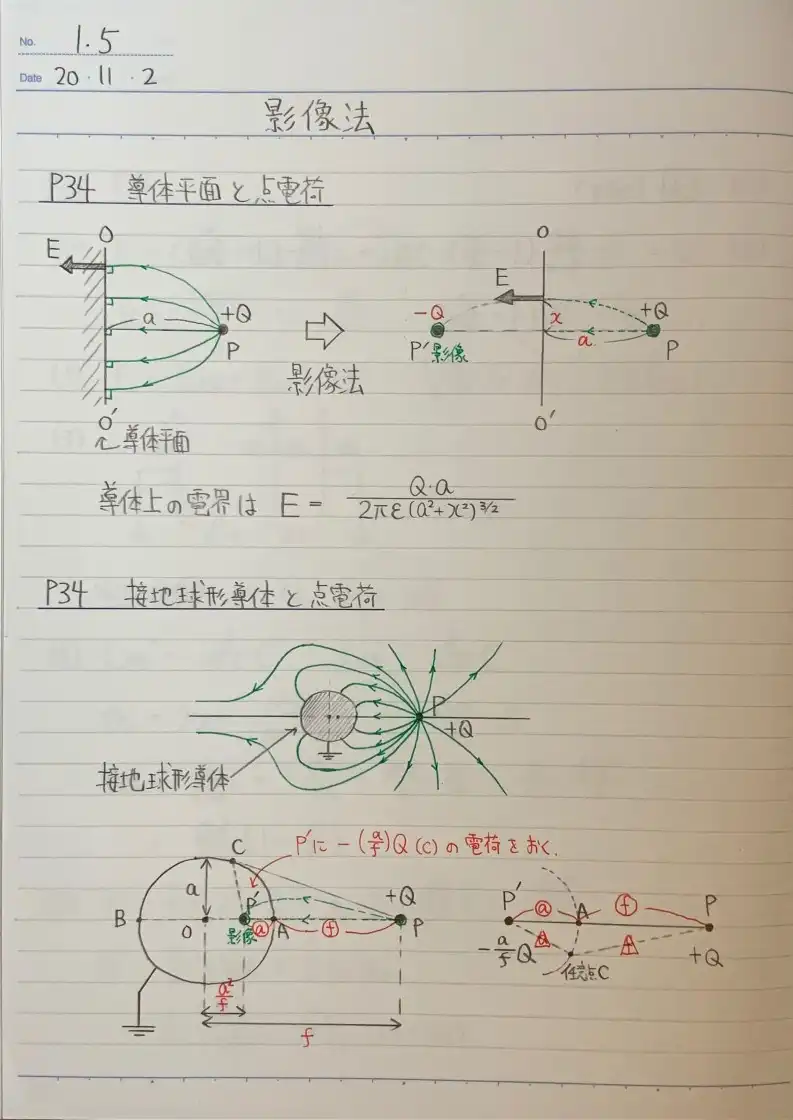 No. 1.5
Date 20・11・2
影像法
P34 導体平面と点電荷
O
E
a
+Q
P
O'
導体平面
影像法
O
E
-Q
x
+Q
P' 影像
a
P
O'
導体上の電界は E = Q・a / 2πε(a²+x²)^3/2
P34 接地球形導体と点電荷
P
+Q
接地球形導体
P'に -(a/f)Q (C) の電荷をおく.
C
a
P'
+Q
B
O
影像
ⓐ
A
ⓕ
P
a²/f
f
P'
ⓐ
A
ⓕ
P
-a/f Q
任意点C
+Q